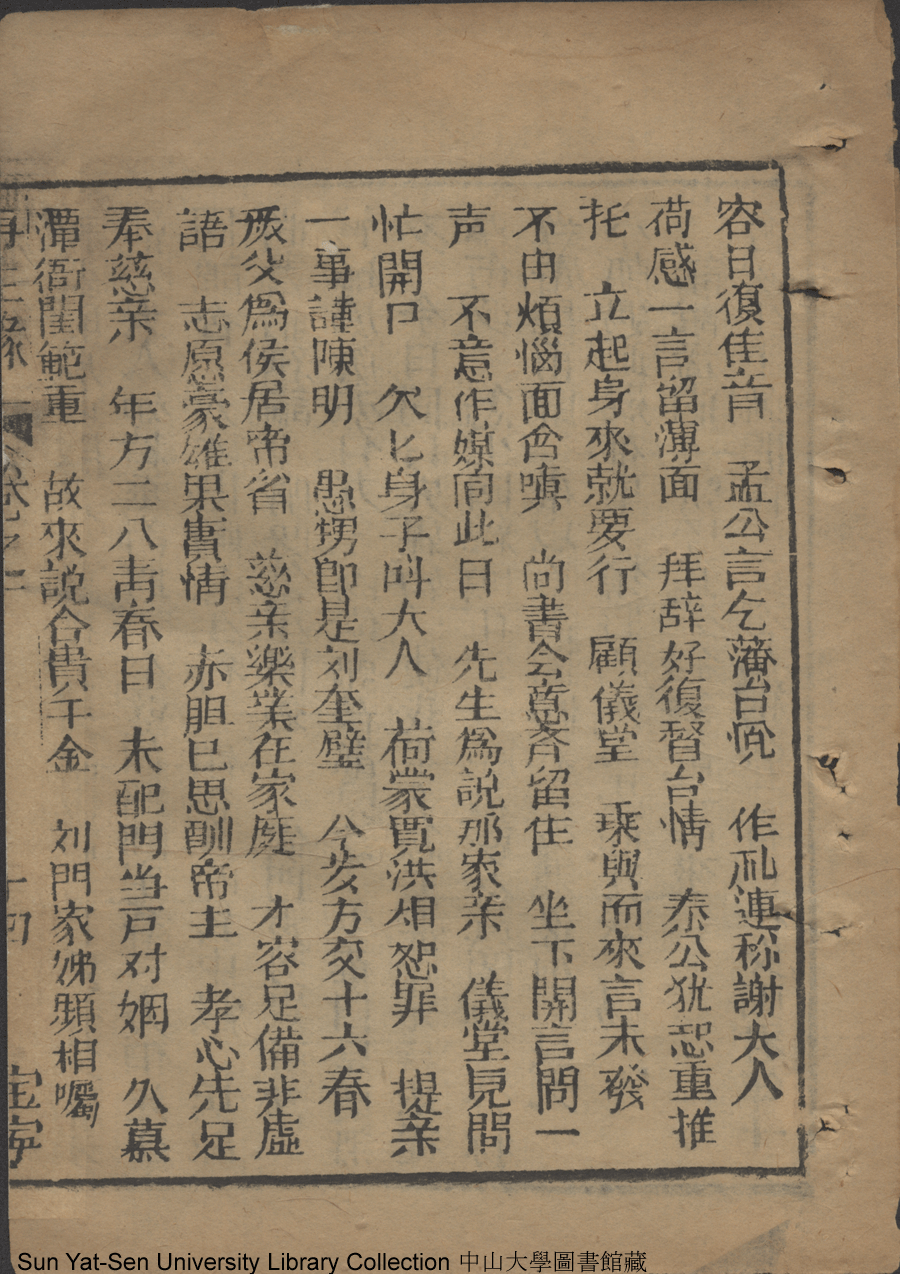 容日復佳音　孟公言乞藩台悅　作礼連称謝大人
荷感一言留薄面　拜辞好復督台情　泰公犹恐重推
托　立起身來就要行　顧儀堂　乘興而來言未發
不由煩惱面含嗔　尚書会意斉留住　坐下開言問一
声　不意作媒向此日　先生為說那家亲　儀堂見問
忙開口　欠匕身子叫大人　荷蒙寬洪相恕罪　提亲
一事謹陳明　愚甥即是刘奎璧　今岁方交十六春
厥父為侯居帝省　慈亲樂業在家庭　才容足備非虛
語　志原豪雄果實情　赤胆已思酬帝主　孝心先足
奉慈亲　年方二八靑春日　未配門当戸对姻　久慕
潭衙閨範重　故來説合貴千金　刘門家姊頻相囑
再生縁　卷之二　十四　宝寧
Sun Yat-Sen University Library Collection 中山大學圖書館藏